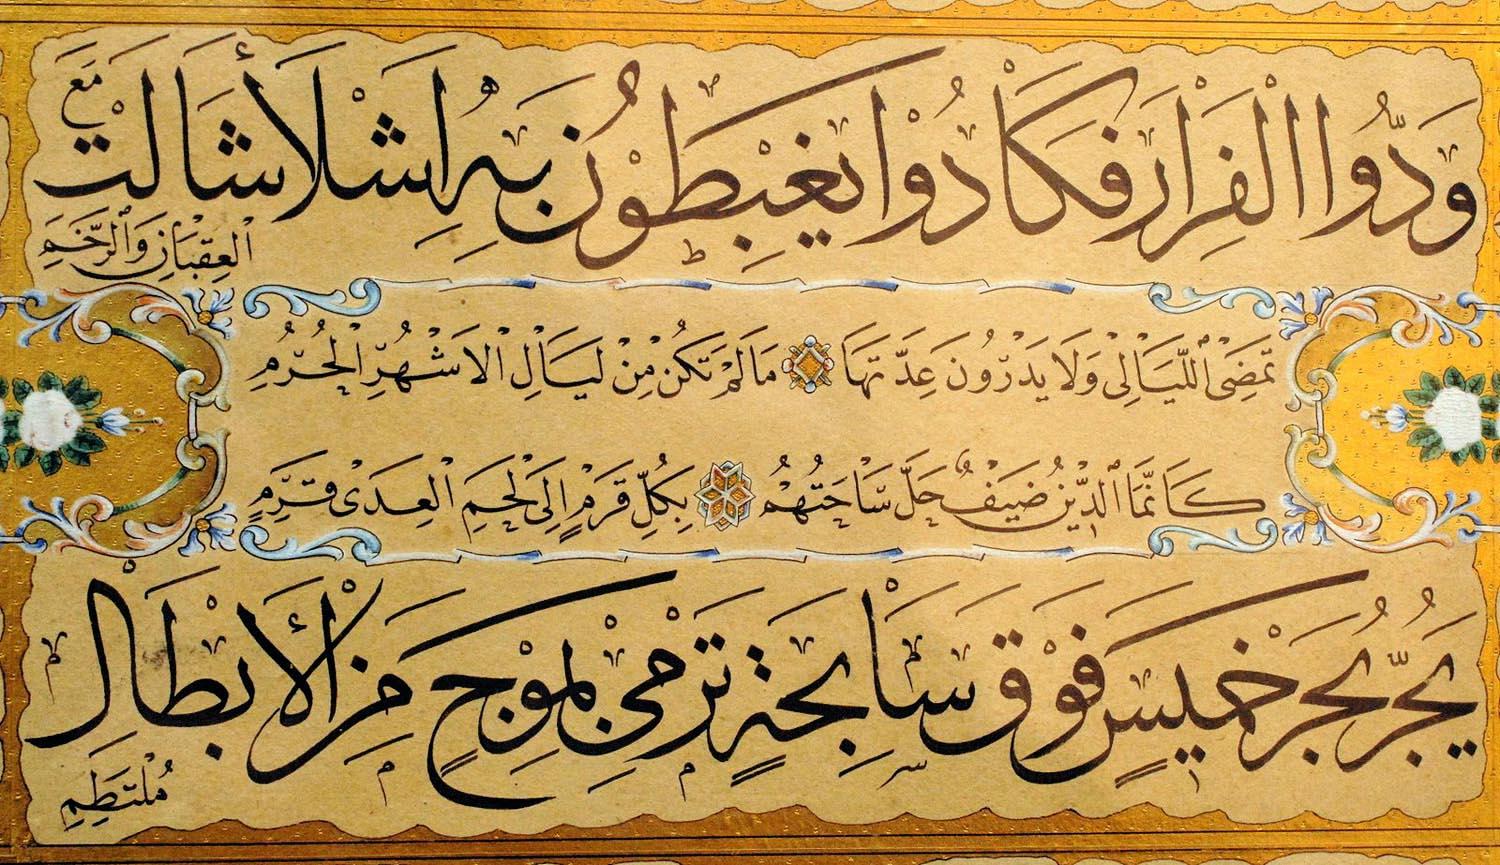 وَدُّوا الْفِرَارَ فَكَادُوا يَغْبِطُونَ بِهِ اَشْلَاءَ شَالَتْ مَعَ
الْعِقْبَانِ وَالرَّخَمِ
تَمْضِى اللَّيَالِى وَلَا يَدْرُونَ عِدَّتَهَا مَا لَمْ تَكُنْ مِنْ لَيَالِ الْاَشْهُرِ الْحُرُمِ
كَاَنَّمَا الدِّينُ ضَيْفٌ حَلَّ سَاحَتَهُمْ بِكُلِّ قَرْمٍ اِلَى لَحْمِ الْعِدَى قَرِمِ
يَجُرُّ بَحْرَ خَمِيسٍ فَوْقَ سَابِحَةٍ تَرْمِى بِمَوْجٍ مِنَ الْأَبْطَالِ
مُلْتَطِمِ